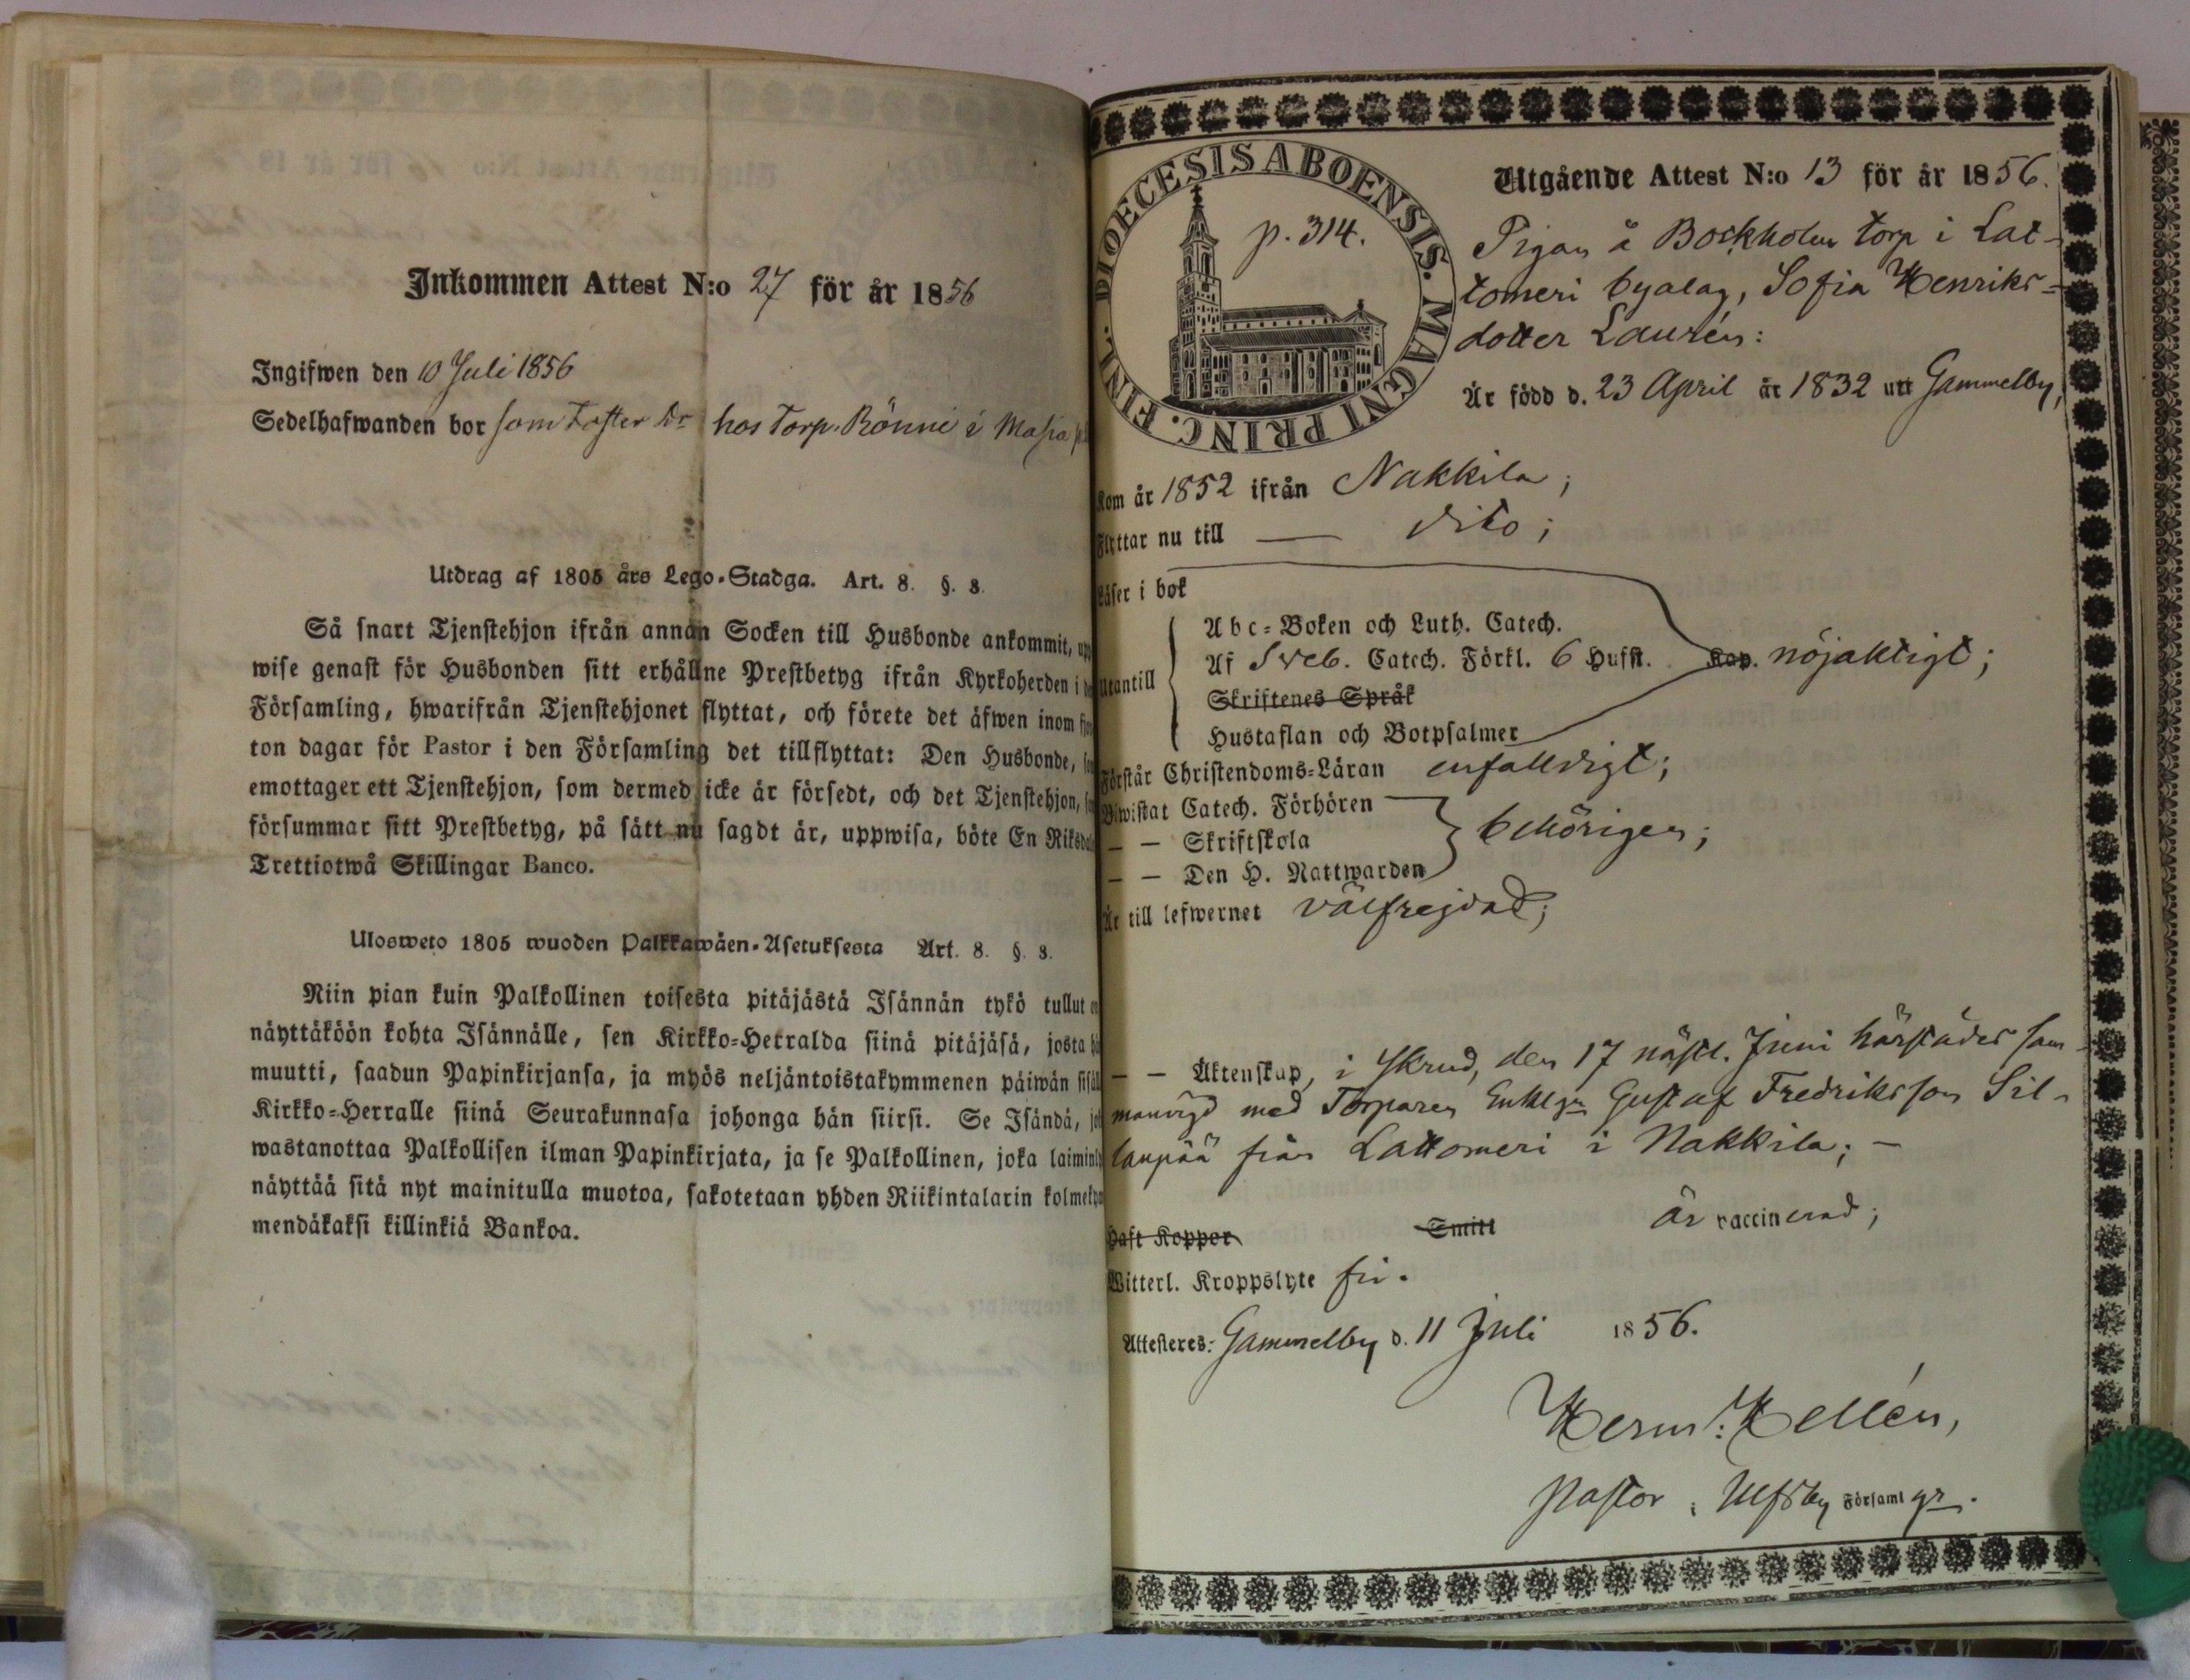 Inkommen Attest N:o 27 för år 1856
Ingifwen den 10 Juli 1856
Sedelhafwanden bor som Foster Dr hos Torp. Rönni i Masia
Utdrag af 1805 års Lego-Stadga. Art. 8. §. 3.
Så snart Tjenstehjon ifrån annan Socken till Husbonde ankommit, upp
wise genast för Husbonden sitt erhållne Prestbetyg ifrån Kyrkoherden i
Församling, hwarifrån Tjenstehjonet flyttat, och förete det äfwen inom
ton dagar för Pastor i den Församling det tillflyttat: Den Husbonde,
emottager ett Tjenstehjon, som dermed icke är försedt, och det Tjenstehjon,
försummar sitt Prestbetyg, på sätt nu sagdt är, uppwisa, böte En Riksdal
Trettiotwå Skillingar Banco.
Ulosweto 1805 wuoden Palkkawäen-Asetuksesta Art. 8. §. 3.
Niin pian kuin Palkollinen toisesta pitäjästä Isännän tykö tullut
näyttäköön kohta Isännälle, sen Kirkko-Herralda siinä pitäjäsä, josta
muutti, saadun Papinkirjansa, ja myös neljäntoistakymmenen päiwän sisäl
Kirkko-Herralle siinä Seurakunnasa johonga hän siirsi. Se Isändä,
wastanottaa Palkollisen ilman Papinkirjata, ja se Palkollinen, joka laimin
näyttää sitä nyt mainitulla muotoa, sakotetaan yhden Riikintalarin kolmeky
mendäkaksi killinkiä Bankoa.
DIOECESIS ABOENSIS. MAGNI PRINC. FINL.
p. 314.
Utgående Attest N:o 13 för år 1856.
Pigan å Bockholm torp i Lat-
tomeri byalag, Sofia Henriks=
dotter Laurén:
Är född d. 23 April år 1832 uti Gammelby,
Kom år 1852 ifrån Nakkila;
Flyttar nu till — dito;
Läser i bok
Abc-Boken och Luth. Catech.
Utantill Af Sveb. Catech. Förkl. 6 Hufst. Kap. nöjaktigt;
Skriftenes Språk
Hustaflan och Botpsalmer
Förstår Christendoms-Läran enfalldigt;
Biwistat Catech. Förhören
— — Skriftskola behörigen;
— — Den H. Nattwarden
Är till lefwernet välfrejdad;
— — Äktenskap, i Skrud, den 17 nästl. Juni härstädes sam-
manvigd med Torparen Enklgn Gustaf Fredriksson Sil-
lanpää från Lattomeri i Nakkila; —
Haft Koppor Smitt är vaccinerad;
Witterl. Kroppslyte fri.
Attesteres: Gammelby d. 11 Juli 1856.
Herm: Hellén,
Pastor i Ulfsby Församl gn.